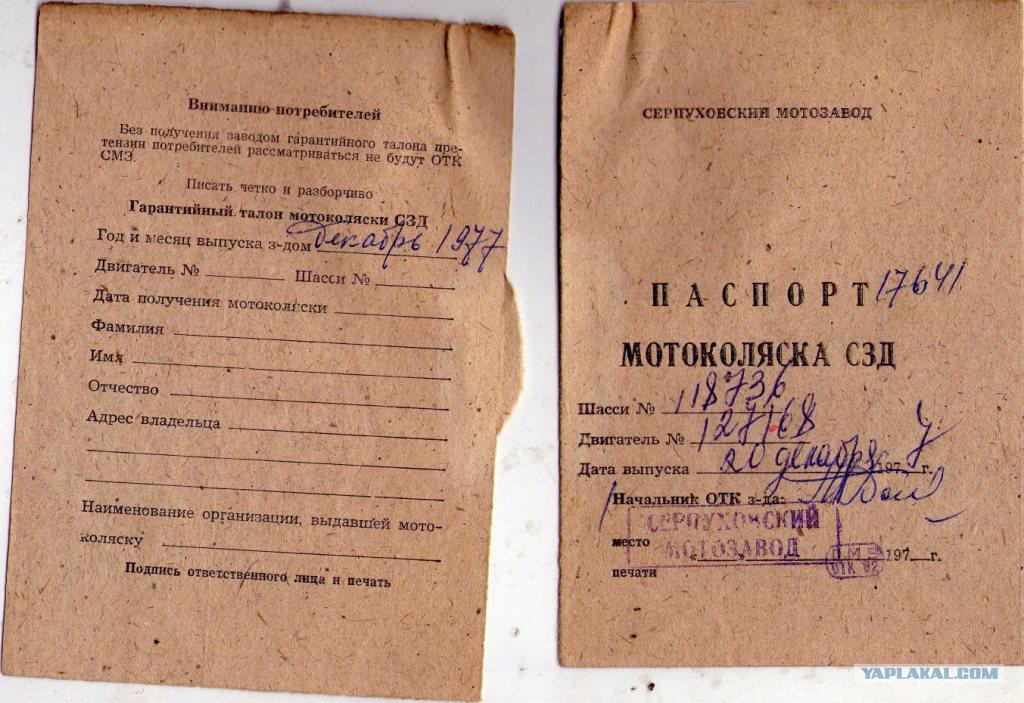 Вниманию потребителей
Без получения заводом гарантийного талона пре-
тензии потребителей рассматриваться не будут ОТК
СМЗ.
Писать четко и разборчиво
Гарантийный талон мотоколяски СЗД
Год и месяц выпуска з-дом декабрь 1977
Двигатель № Шасси №
Дата получения мотоколяски
Фамилия
Имя
Отчество
Адрес владельца
Наименование организации, выдавшей мото-
коляску
Подпись ответственного лица и печать
СЕРПУХОВСКИЙ МОТОЗАВОД
ПАСПОРТ 17641
МОТОКОЛЯСКА СЗД
Шасси № 118736
Двигатель № 127168
Дата выпуска 20 декабря 1977 г.
Начальник ОТК з-да:
СЕРПУХОВСКИЙ
МОТОЗАВОД
место
« » 197 г.
СМЗ
ОТК 92
печати
YAPLAKAL.COM